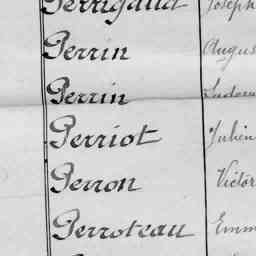 Perrigaud Joseph
Perrin Augus
Perrin Ludov
Perriot Julien
Perron Victor
Perroteau Emm